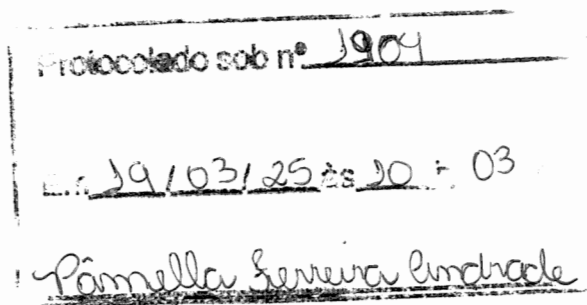 Protocolado sob nº 1904
Em 19/03/25 às 10 h 03
Pâmella Ferreira Andrade